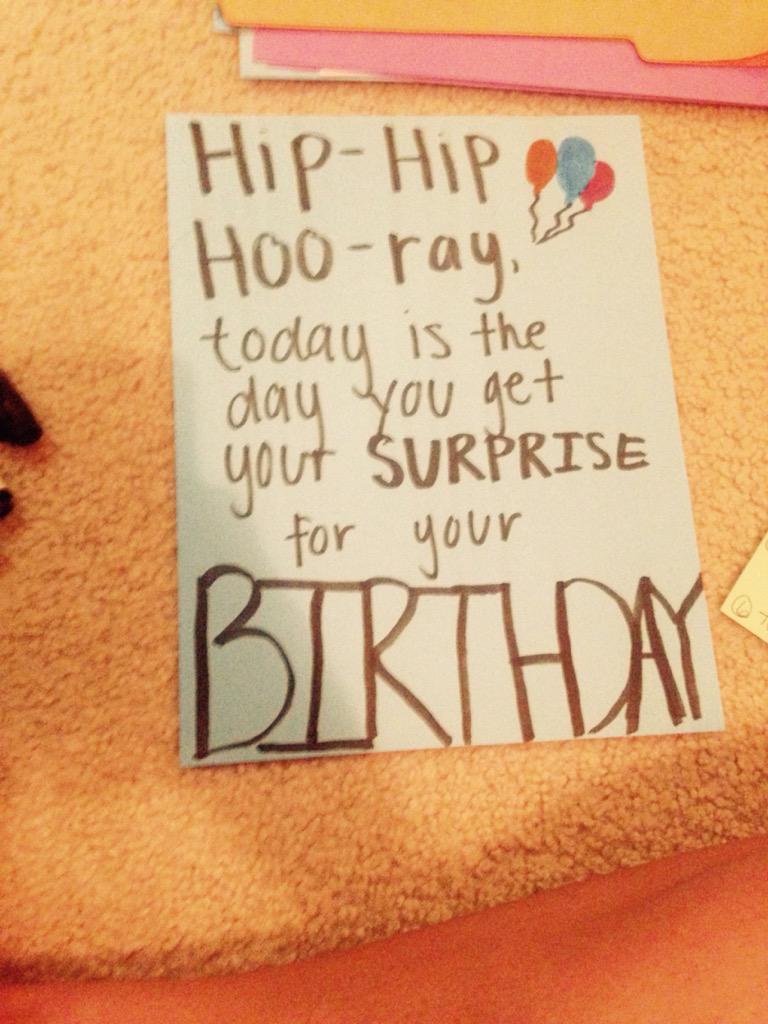 Hip-Hip
Hoo-ray,
today is the
day you get
your SURPRISE
for your
BIRTHDAY
6